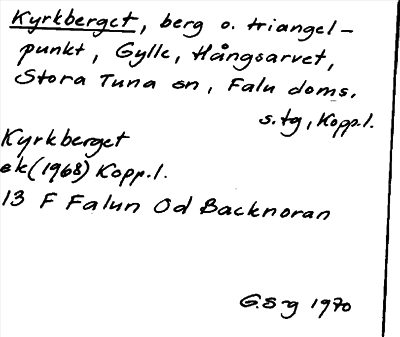 Kyrkberget, berg o. triangel-
punkt, Gylle, Hångsarvet,
Stora Tuna sn, Falu doms.
s.tg, Kopp.l.
Kyrkberget
ek(1968) Kopp.l.
13 F Falun 0d Backnoran
G.S-g 1970